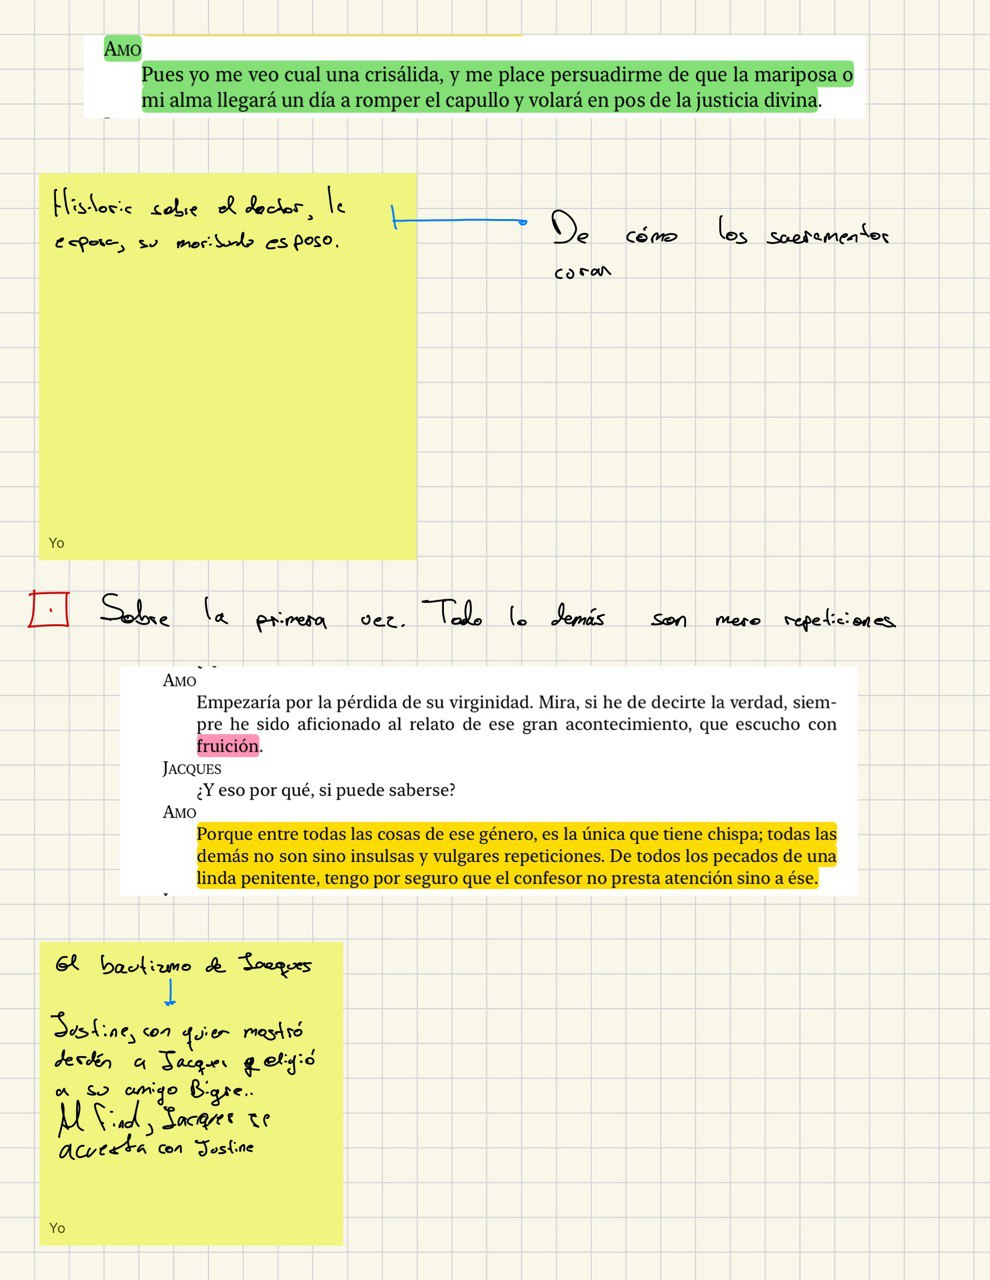 AMO
Pues yo me veo cual una crisálida, y me place persuadirme de que la mariposa o
mi alma llegará un día a romper el capullo y volará en pos de la justicia divina.
Historia sobre el doctor, la
esposa, su moribundo esposo.
De cómo los sacramentos
coran
Yo
Sobre la primera vez. Todo lo demás son mero repeticiones
AMO
Empezaría por la pérdida de su virginidad. Mira, si he de decirte la verdad, siem-
pre he sido aficionado al relato de ese gran acontecimiento, que escucho con
fruición.
JACQUES
¿Y eso por qué, si puede saberse?
AMO
Porque entre todas las cosas de ese género, es la única que tiene chispa; todas las
demás no son sino insulsas y vulgares repeticiones. De todos los pecados de una
linda penitente, tengo por seguro que el confesor no presta atención sino a ése.
El bautizmo de Jacques
Justine, con quien mostró
desdén a Jacques y eligió
a su amigo Bigre..
Al final, Jacques se
acuesta con Justine
Yo